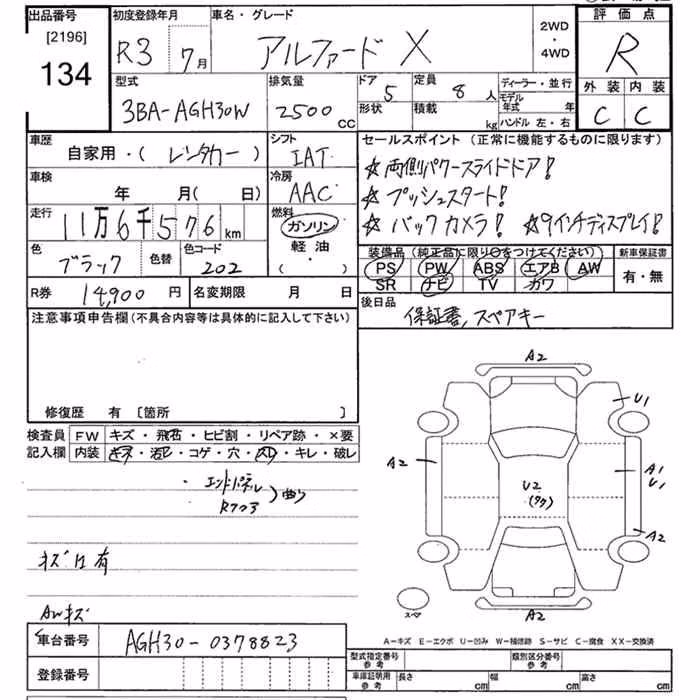 出品番号 初度登録年月 車名・グレード 評価点
[2196]
134 R3年 7月 アルファード X 2WD・4WD R
型式 排気量 ドア 定員 ディーラー・並行 外装 内装
3BA-AGH30W 2500CC 5 8人 モデル年式 年 C C
形状 積載 kg ハンドル 左・右
車歴 シフト セールスポイント (正常に機能するものに限ります)
自家用・(レンタカー) IAT ☆両側パワースライドドア!
車検 冷房
年 月(日) AAC ☆プッシュスタート!
走行 燃料
11万6千576km ガソリン ☆バックカメラ! ☆9インチディスプレイ!
色 色替 色コード 軽油 装備品 (純正品に限り○をつけてください) 新車保証書
ブラック 202 ・( ) PS PW ABS エアB AW 有・無
SR ナビ TV カワ
R券 14,900円 名変期限 月 日 後日品
保証書, スペアキー
注意事項申告欄 (不具合内容等は具体的に記入して下さい)
修復歴 有 [箇所 ]
検査員 FW キズ・飛石・ヒビ割・リペア跡・×要
記入欄 内装 キズ・汚レ・コゲ・穴・スレ・キレ・破レ
・エンドパネル
Rフロア 曲り
キズ凹有
AWキズ
A2
U1
A2 A1
U1
U2
(多々)
A2
スペア A2
A-キズ E-エクボ U-凹み W-補修跡 S-サビ C-腐食 XX-交換済
車台番号 AGH30-0378823 型式指定番号 参考 類別区分番号 参考
登録番号 車庫証明用 参考 長さ cm 幅 cm 高さ cm